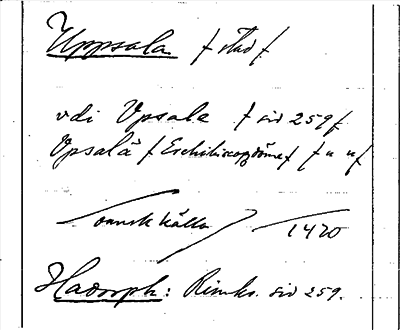 Uppsala / stad /
vdi Vpsale / sid 259 /
Vpsalä / Erchibiscopdöme / / " " /
dansk källa / 1470
Hadorph: Rimkr. sid 259.